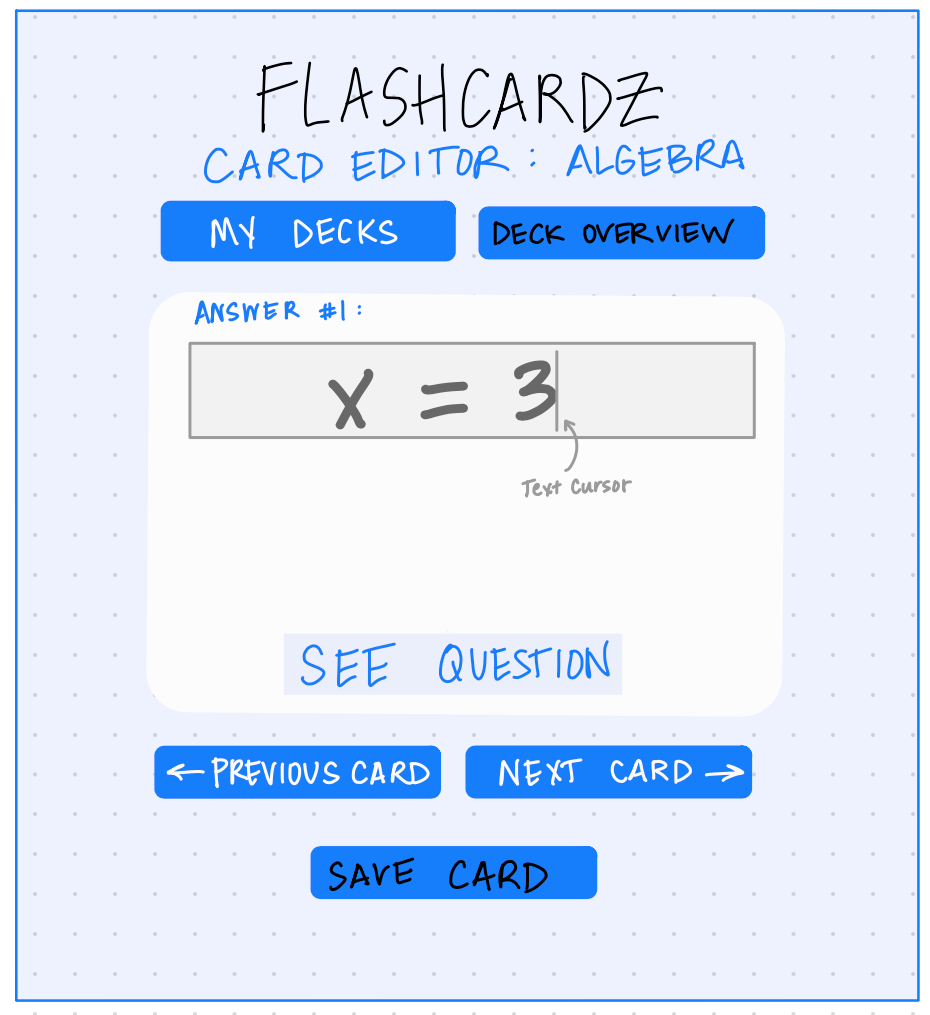 FLASHCARDZ
CARD EDITOR: ALGEBRA
MY DECKS
DECK OVERVIEW
ANSWER #1:
x = 3
Text Cursor
SEE QUESTION
← PREVIOUS CARD
NEXT CARD →
SAVE CARD